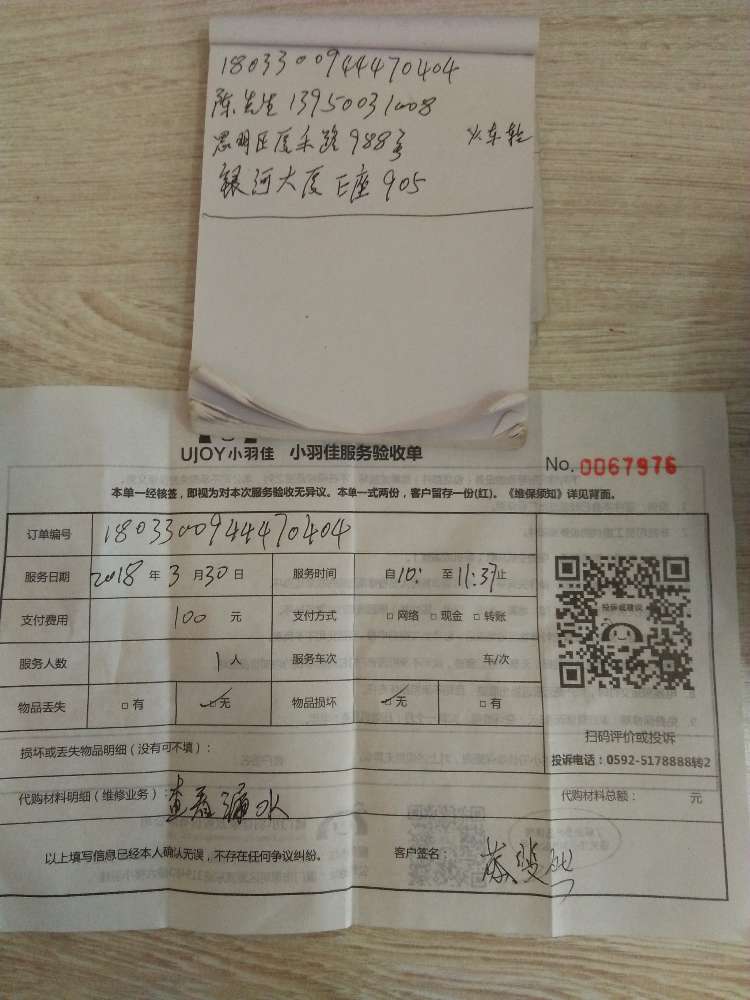 1803300944470404
陈先生 13950031008
思明区厦禾路988号 火车站
银河大厦E座905
UJOY小羽佳 小羽佳服务验收单
No. 0067976
本单一经核签，即视为对本次服务验收无异议。本单一式两份，客户留存一份(红)。《维保须知》详见背面。
订单编号 1803300944470404
服务日期 2018 年 3 月 30 日 服务时间 自10: 至 11:37止
支付费用 100 元 支付方式 □ 网络 □ 现金 □ 转账
服务人数 1 人 服务车次 车/次
物品丢失 □ 有 ☑ 无 物品损坏 ☑ 无 □ 有
投诉或建议
扫码评价或投诉
投诉电话：0592-5178888转2
损坏或丢失物品明细（没有可不填）：
代购材料明细（维修业务）：查看漏水 代购材料总额： 元
以上填写信息已经本人确认无误，不存在任何争议纠纷。 客户签名：